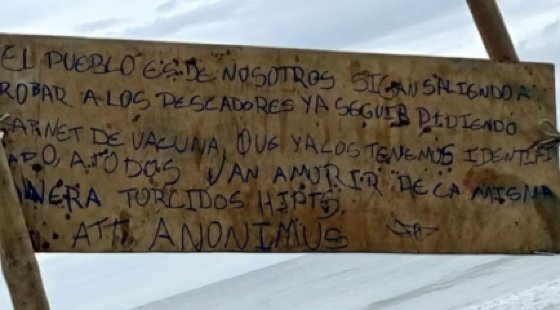 EL PUEBLO ES DE NOSOTROS SIGAN SALIENDO A
ROBAR A LOS PESCADORES YA SEGUIR DIDIENDO
CARNET DE VACUNA, QUE YA LOS TENEMOS IDENTIFI
ADO, A TODOS VAN AMURIR DE LA MISMA
NERA TORCIDOS HIPTS.
ATT. ANONIMUS